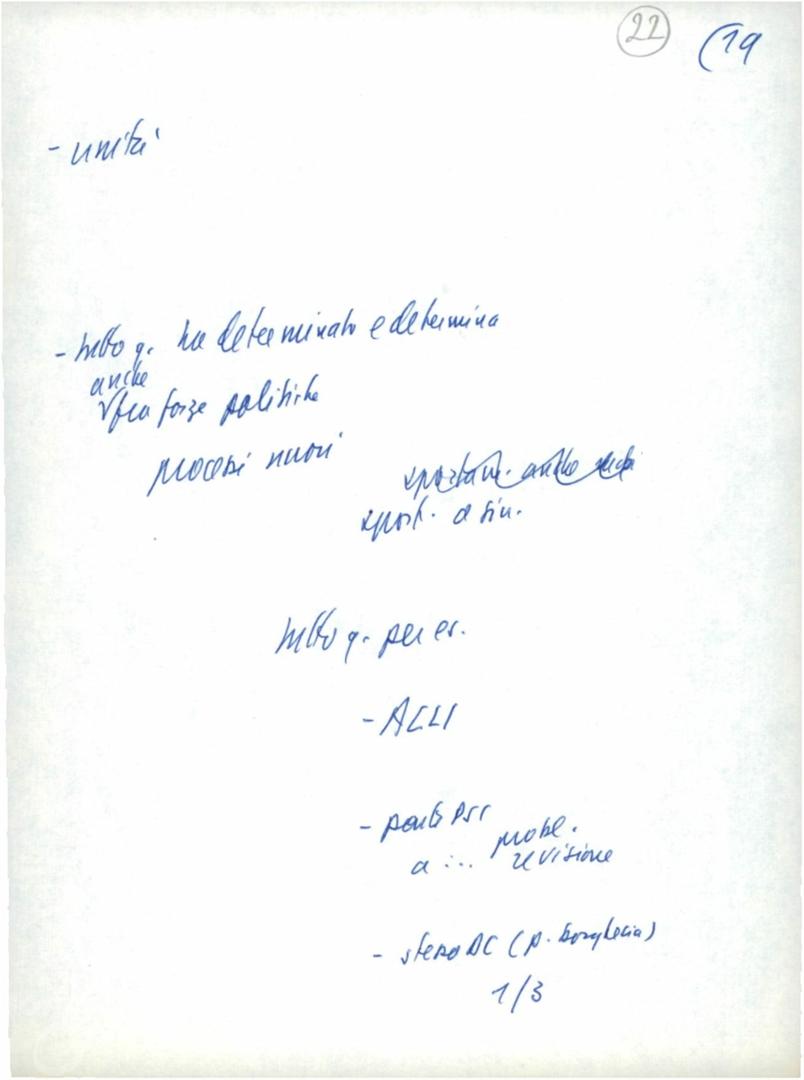 22 (19
- unità
- tutto q. ha determinato e determina
anche
√ fra forze politiche
processi nuovi
spost. a sin.
tutto q. per es.
- ACLI
- parte PSI
probl.
a ... revisione
- stesso DC (p. borghesia)
1/3